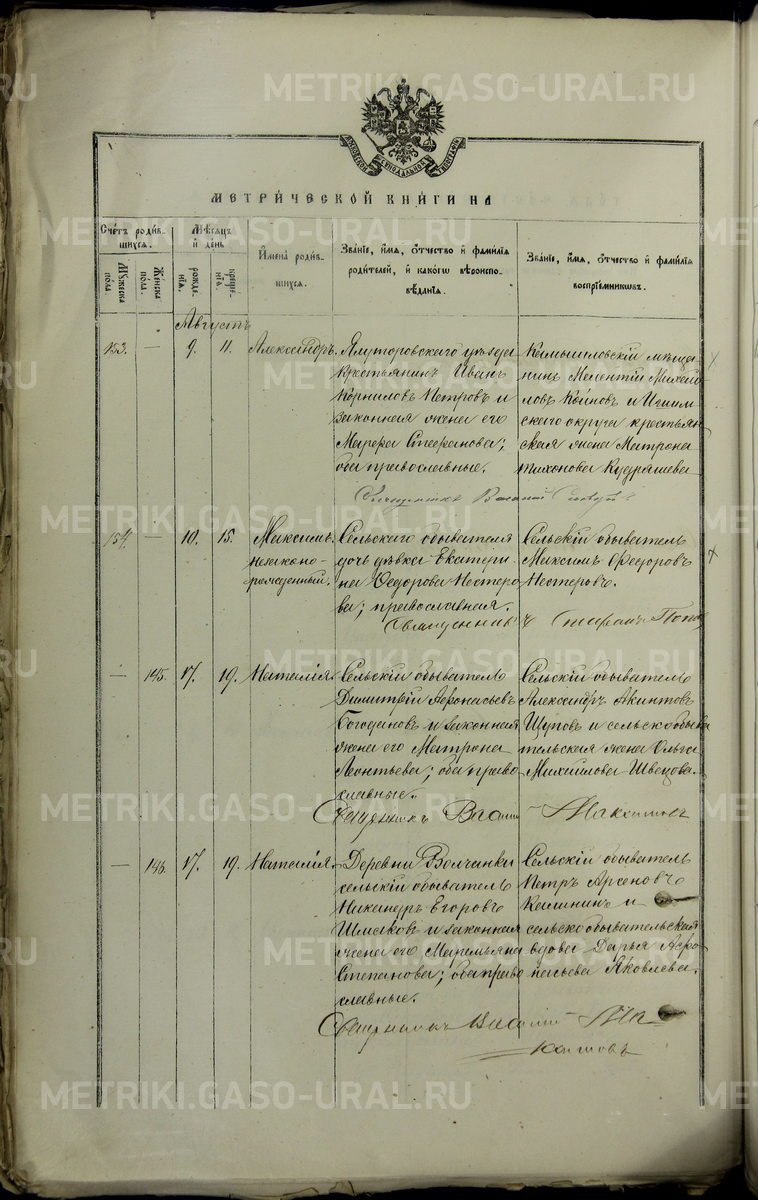 METRIKI.GASO-URAL.RU
МЕТРИ́ЧЕСКОЙ КНИ́ГИ НА
Счетъ родив-
шихся.
Мужеска
пола
Женска
пола.
Мѣсяцъ
и день
рожде-
нія.
креще-
нія
Имена родив-
шихся.
Званіе, имя, отчество и фамилія
родителей, и какого вѣроиспо-
вѣданія.
Званіе, имя, отчество и фамилія
воспріемниковъ.
Августъ
153. — 9. 11. Александръ.
Ялуторовскаго уѣзда
крестьянинъ Иванъ
Корниловъ Петровъ и
законная жена его
Марфа Стефанова;
оба православные.
Камышловскій мѣща-
нинъ Мелентій Михай-
ловъ Коиновъ и Ишим-
скаго округа крестьян-
ская жена Матрона
Тихонова Кудряшева
Священникъ Василій
154. — 10. 15. Максимъ.
незакон-
рожденный.
Сельскаго обывателя
дочь дѣвка Екатери-
на Ѳедорова Нестеро-
ва; православная.
Сельскій обыватель
Максимъ Ѳедоровъ
Нестеровъ.
Священникъ Попов
— 145. 17. 19. Наталія.
Сельскій обыватель
Димитрій Аѳонасьевъ
Богдановъ и законная
жена его Матрона
Леонтьева; оба право-
славные.
Сельскій обыватель
Александръ Акинтовъ
Щуповъ и сельскообыва-
тельская жена Ольга
Михаилова Швецова.
Священникъ Василій Максимовъ
— 146. 17. 19. Наталія.
Деревни Волчанки
сельскій обыватель
Никандръ Егоровъ
Шмаковъ и законная
жена его Маремьяна
Степанова; оба право-
славные.
Сельскій обыватель
Петръ Арсеновъ
Калининъ и
сельскообывательская
вдова Дарья Аѳо-
насьева Яковлева.
Священникъ Василій Ма-
ксимовъ